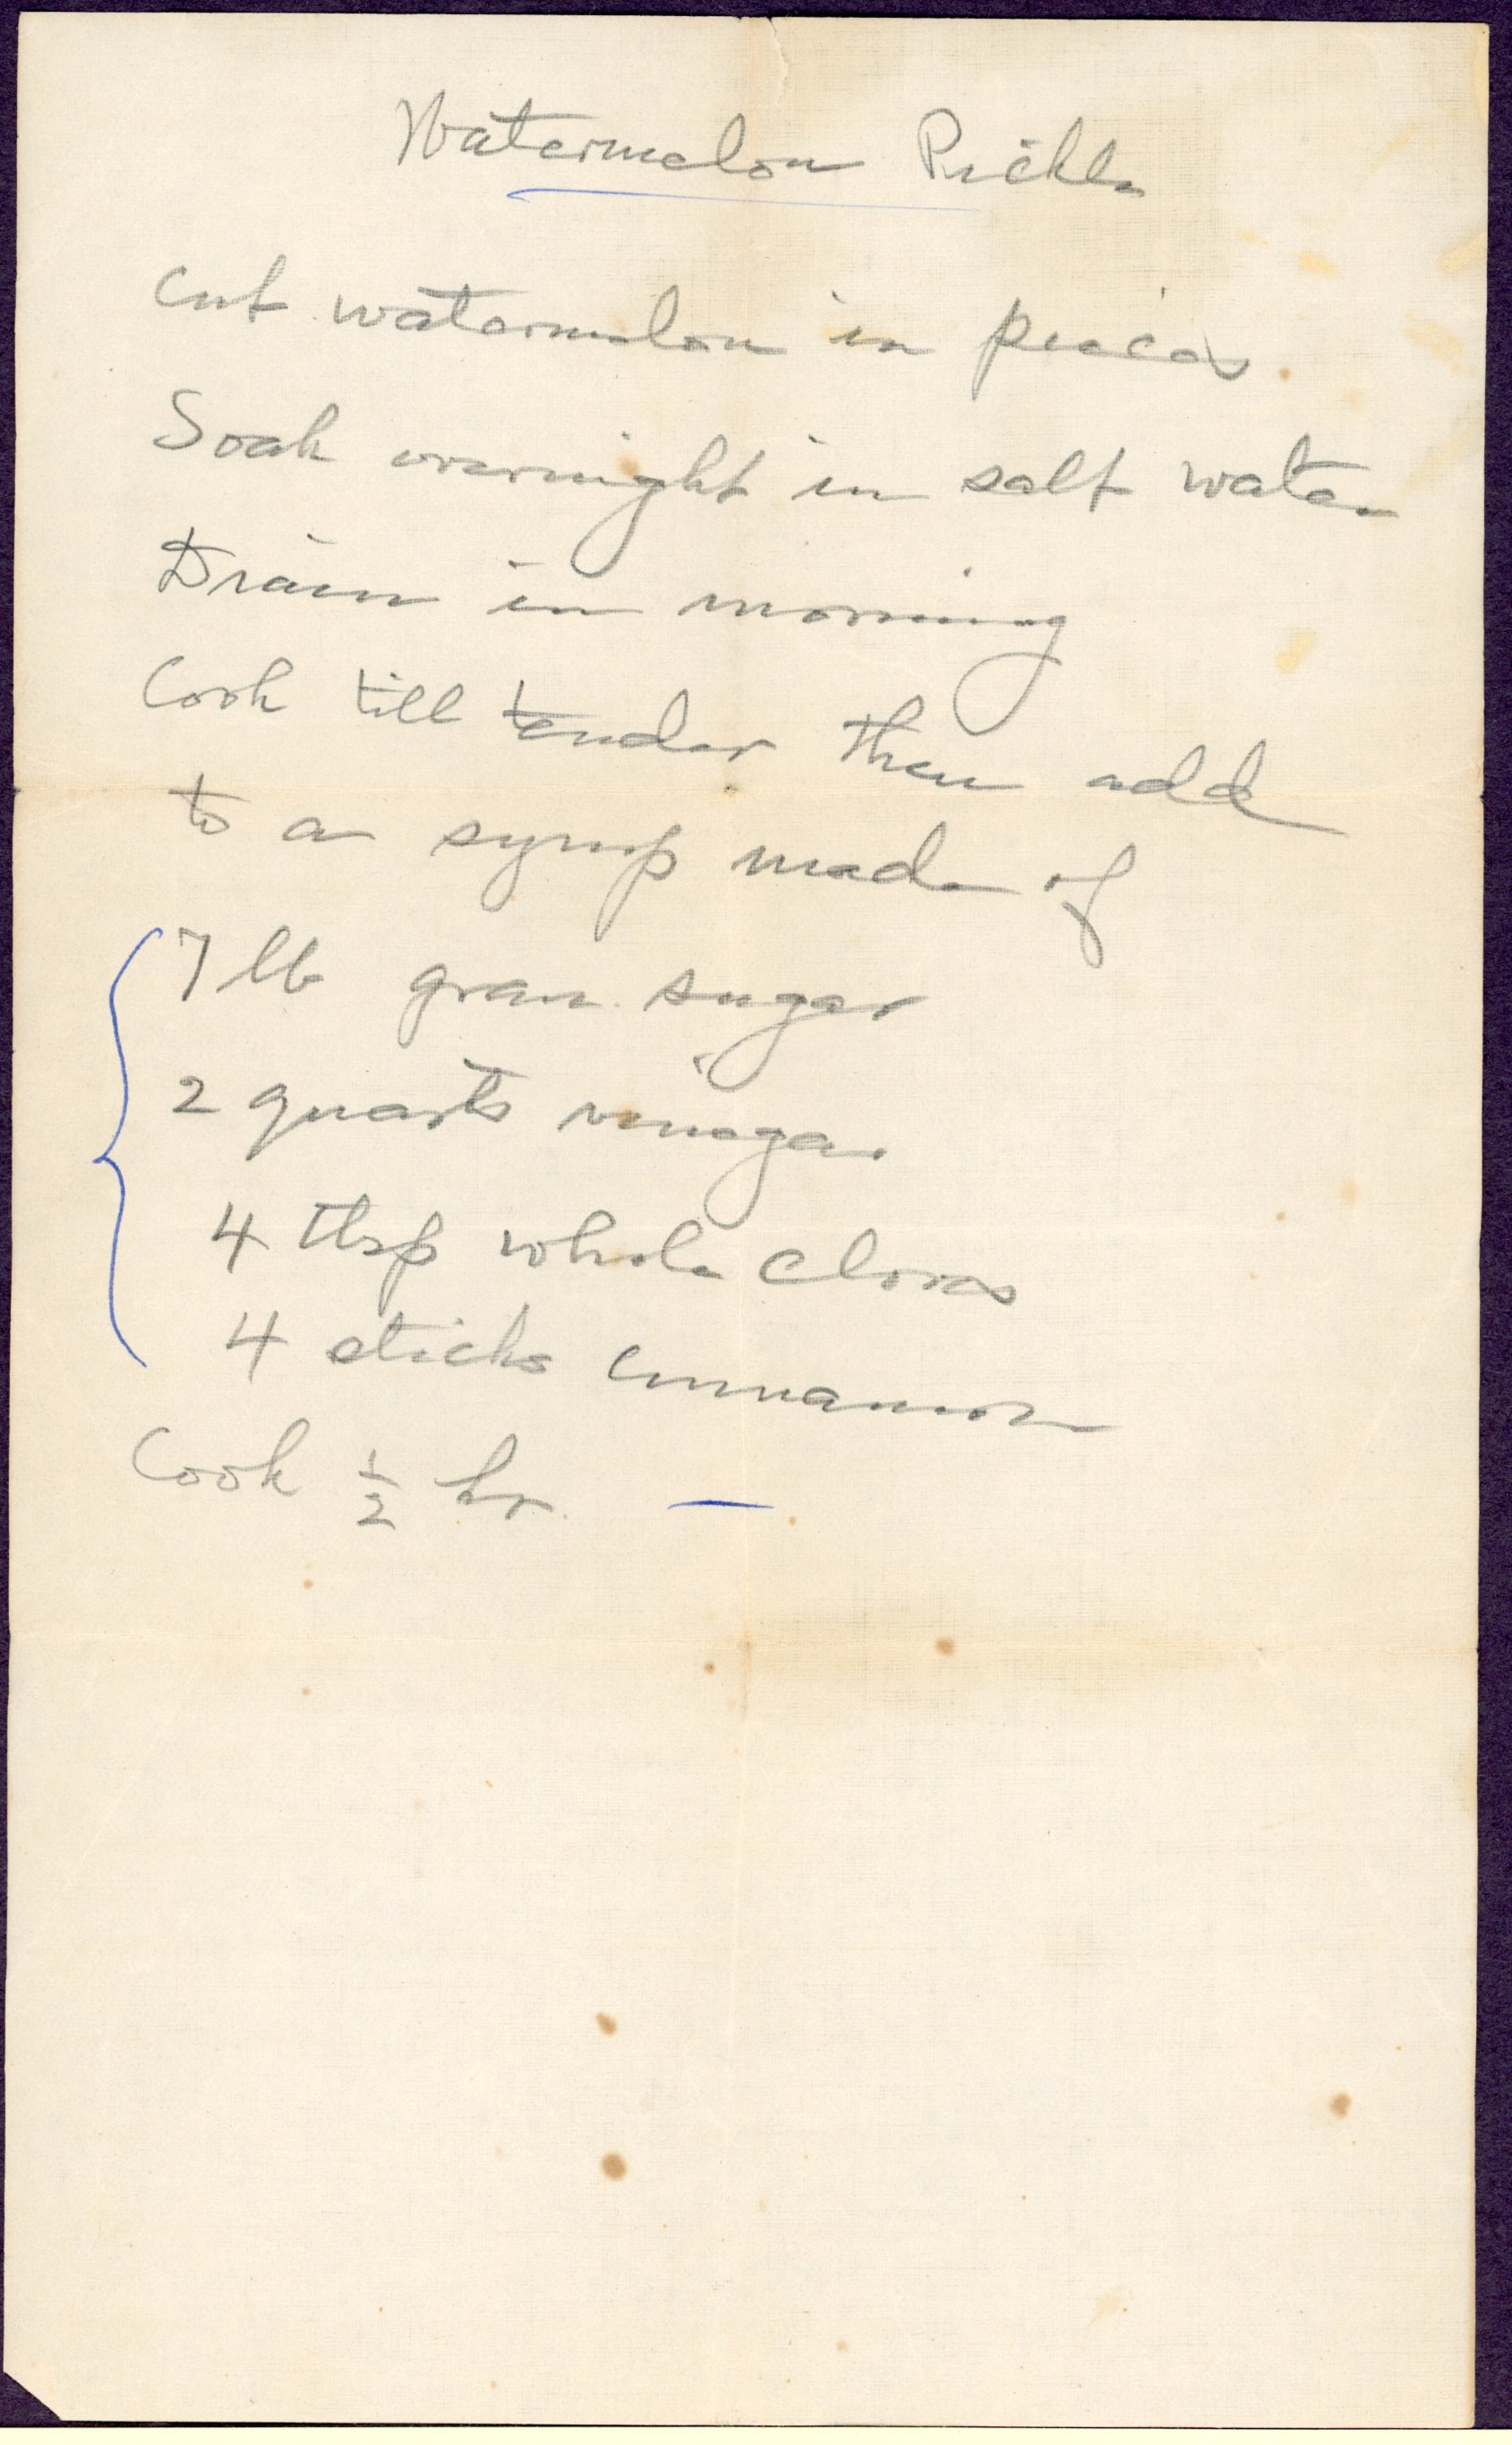 Watermelon Pickle
Cut watermelon in pieces.
Soak overnight in salt water
Drain in morning
Cook till tender then add
to a syrup made of
7 lb gran. sugar
2 quarts vinegar
4 tbsp whole cloves
4 sticks cinnamon
Cook 1/2 hr. —